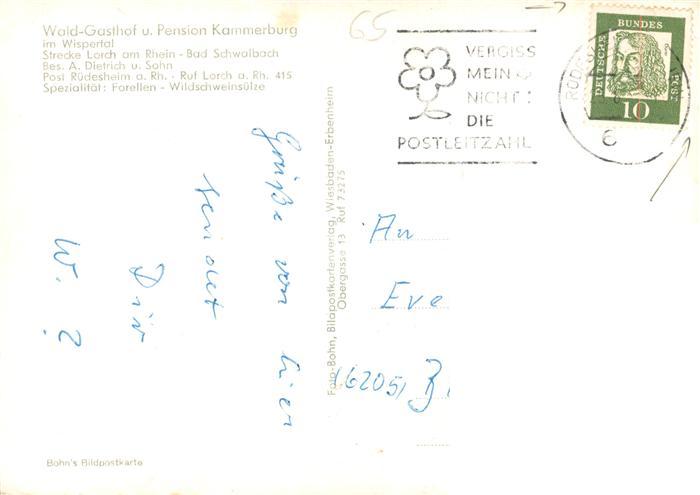 Wald-Gasthof u. Pension Kammerburg
im Wispertal
Strecke Lorch am Rhein - Bad Schwalbach
Bes. A. Dietrich u. Sohn
Post Rüdesheim a. Rh. - Ruf Lorch a. Rh. 415
Spezialität: Forellen - Wildschweinsülze
65
VERGISS
MEIN
NICHT:
DIE
POSTLEITZAHL
DEUTSCHE
BUNDES
POST
10
6
Grüße von hier
sendet
Dir
W. ?
Foto-Bohn, Bildpostkartenverlag, Wiesbaden-Erbenheim
Obergasse 13 Ruf 73275
An
Eve
(6205) B
Bohn's Bildpostkarte